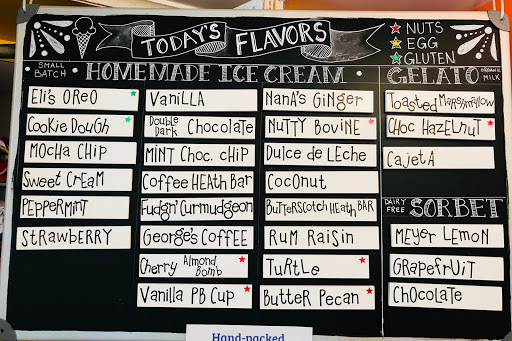 TODAY'S FLAVORS
NUTS
EGG
GLUTEN
SMALL BATCH
HOMEMADE ICE CREAM
Eli's OReO
Cookie DouGh
MOcHA CHiP
Sweet CReaM
PEPPERMiNT
StRAWBeRRY
VaniLLA
Double Dark Chocolate
MINT CHoc. cHiP
Coffee HEAth Bar
Fudgn' Curmudgeon
George's CoffEE
Cherry Almond Bomb
Vanilla PB Cup
NanA's GiNger
NuTTY BoViNE
Dulce de LEche
CocoNut
ButteRScotcH HEath BAR
RuM RaiSin
TuRtLe
ButteR Pecan
GELATO
ORGANIC MILK
Toasted MaRsHmallow
CHoc HaZELnuT
CajetA
DAIRY FREE
SORBET
MEyer LEMon
GRApefrUiT
CHOcolaTe
Hand-packed